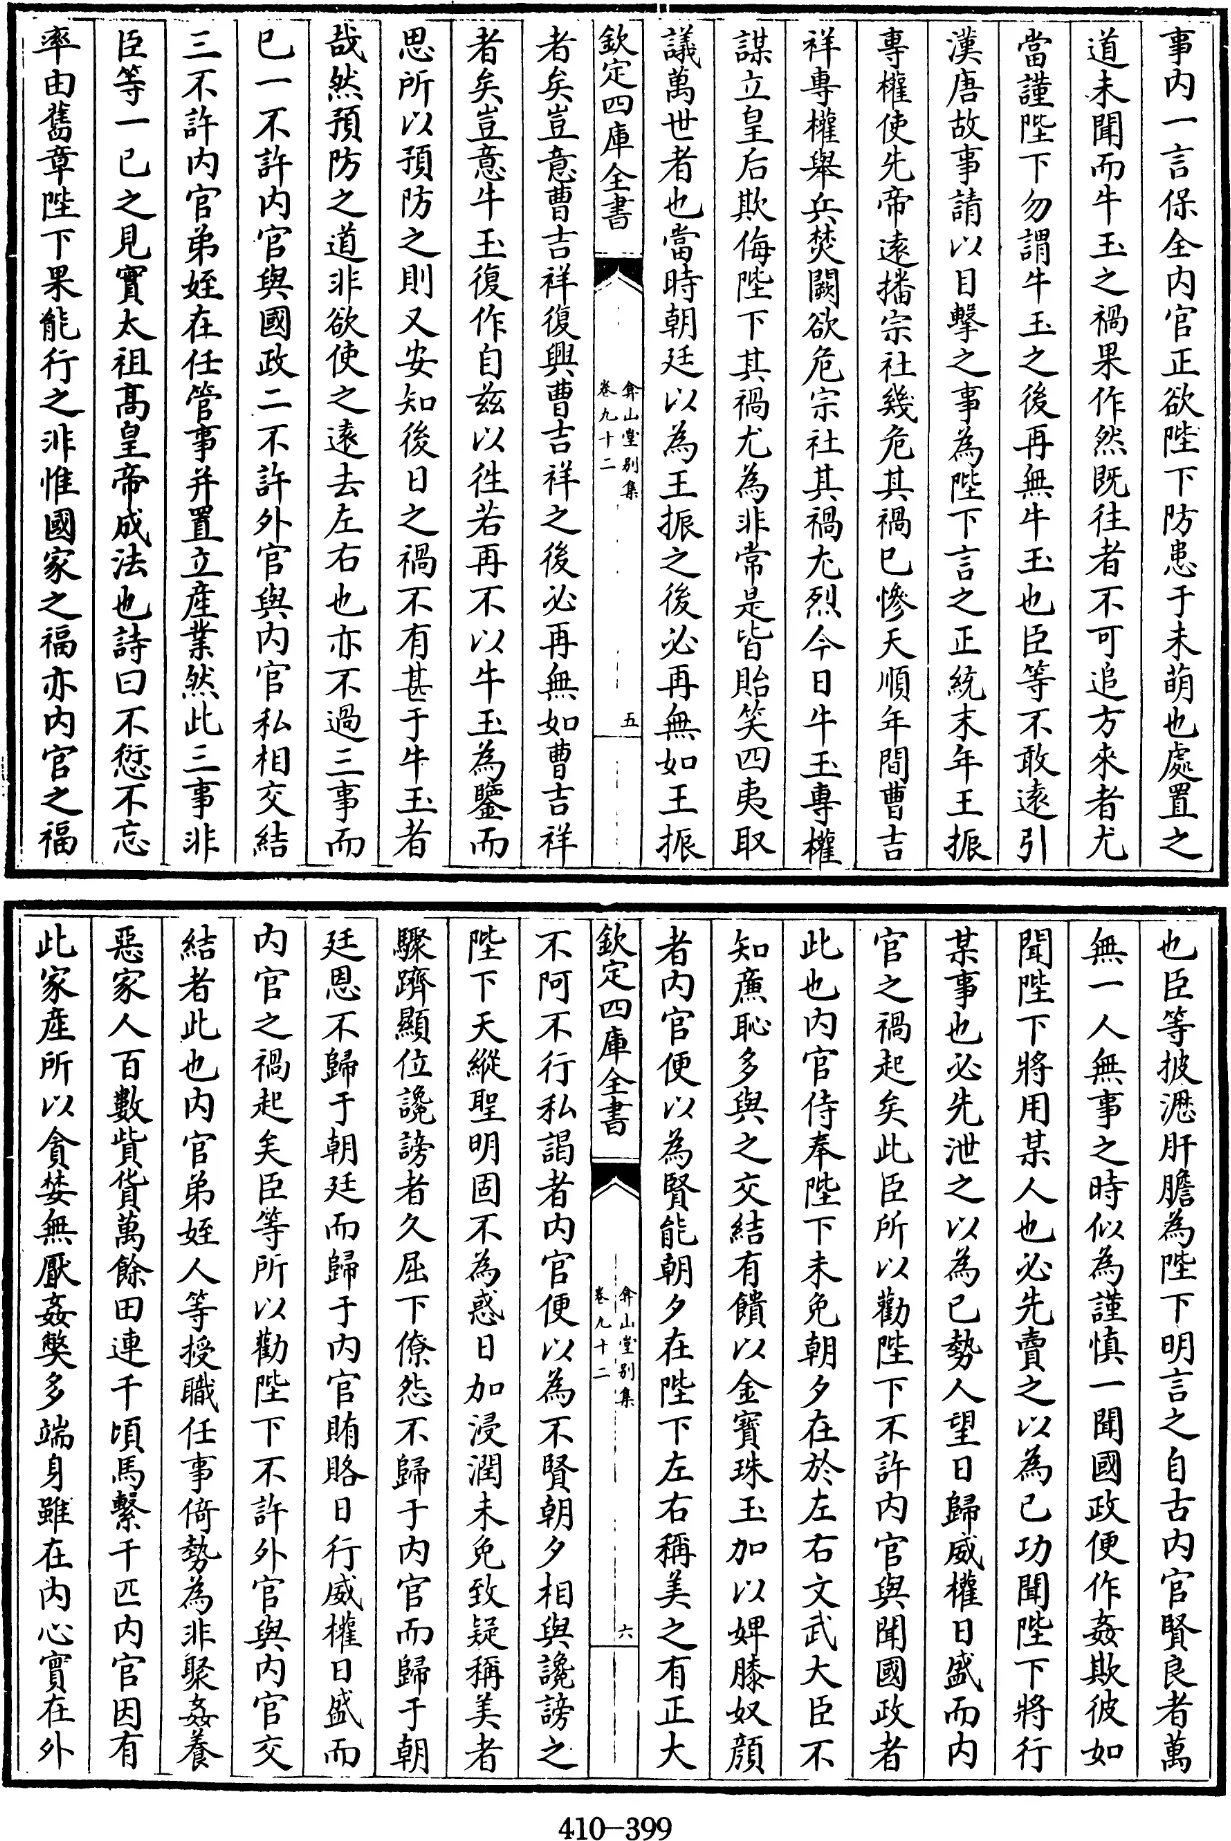 事内一言保全内官正欲陛下防患于未萌也處置之
道未聞而牛玉之禍果作然既往者不可追方來者尤
當謹陛下勿謂牛玉之後再無牛玉也臣等不敢遠引
漢唐故事請以目擊之事為陛下言之正統末年王振
專權使先帝遠播宗社幾危其禍已慘天順年間曹吉
祥專權舉兵焚闕欲危宗社其禍尤烈今日牛玉專權
謀立皇后欺侮陛下其禍尤為非常是皆貽笑四夷取
議萬世者也當時朝廷以為王振之後必再無如王振
欽定四庫全書
弇山堂别集
卷九十二
五
者矣豈意曹吉祥復興曹吉祥之後必再無如曹吉祥
者矣豈意牛玉復作自兹以徃若再不以牛玉為鑒而
思所以預防之則又安知後日之禍不有甚于牛玉者
哉然預防之道非欲使之遠去左右也亦不過三事而
已一不許内官與國政二不許外官與内官私相交結
三不許内官弟姪在任管事并置立産業然此三事非
臣等一已之見實太祖髙皇帝成法也詩曰不愆不忘
率由舊章陛下果能行之非惟國家之福亦内官之福
也臣等披瀝肝膽為陛下明言之自古内官賢良者萬
無一人無事之時似為謹慎一聞國政便作姦欺彼如
聞陛下將用某人也必先賣之以為已功聞陛下將行
某事也必先泄之以為已勢人望日歸威權日盛而内
官之禍起矣此臣所以勸陛下不許内官與聞國政者
此也内官侍奉陛下未免朝夕在於左右文武大臣不
知亷恥多與之交結有饋以金寶珠玉加以婢膝奴顔
者内官便以為賢能朝夕在陛下左右稱美之有正大
欽定四庫全書
弇山堂别集
卷九十二
六
不阿不行私謁者内官便以為不賢朝夕相與讒謗之
陛下天縱聖明固不為惑日加浸潤未免致疑稱美者
驟躋顯位讒謗者久屈下僚怨不歸于内官而歸于朝
廷恩不歸于朝廷而歸于内官賄賂日行威權日盛而
内官之禍起矣臣等所以勸陛下不許外官與内官交
結者此也内官弟姪人等授職任事倚勢為非聚姦養
惡家人百數貲貨萬餘田連千頃馬繫千匹内官因有
此家産所以貪婪無厭姦弊多端身雖在内心實在外
410-399